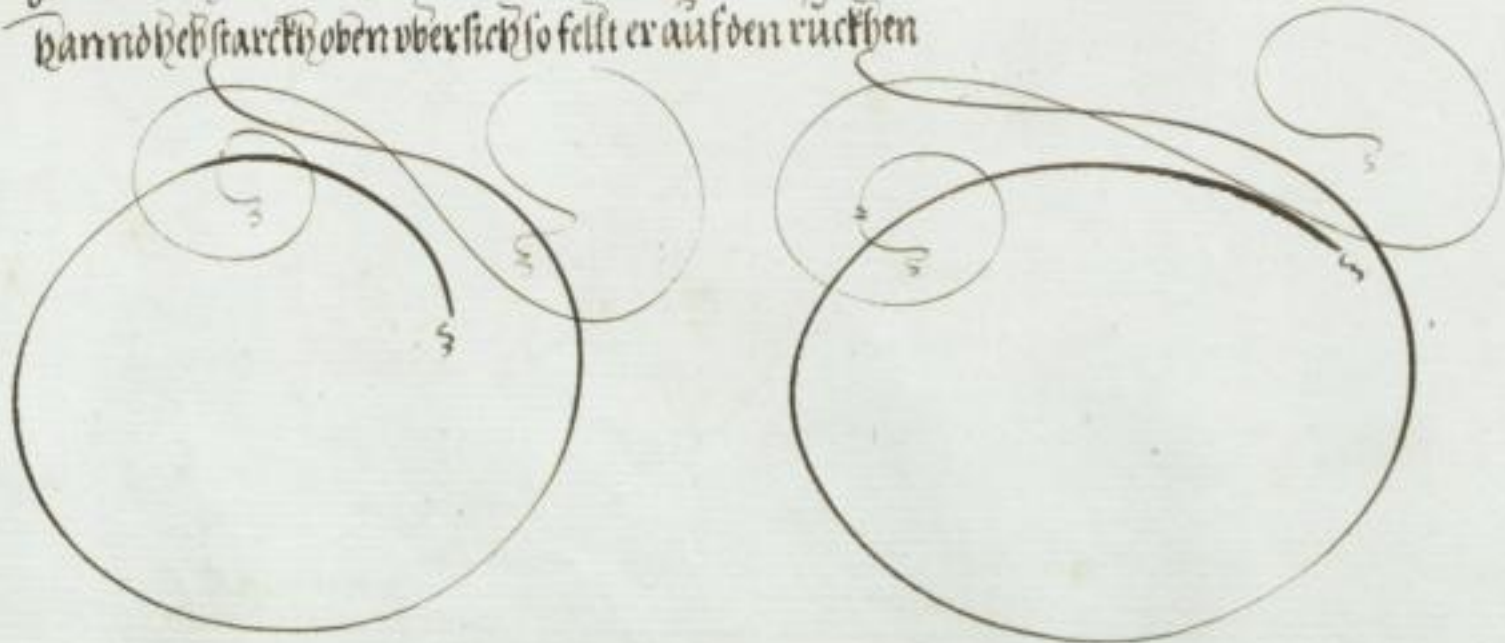 hannd heb starckh oben vbersich so fellt er auf den ruckhen